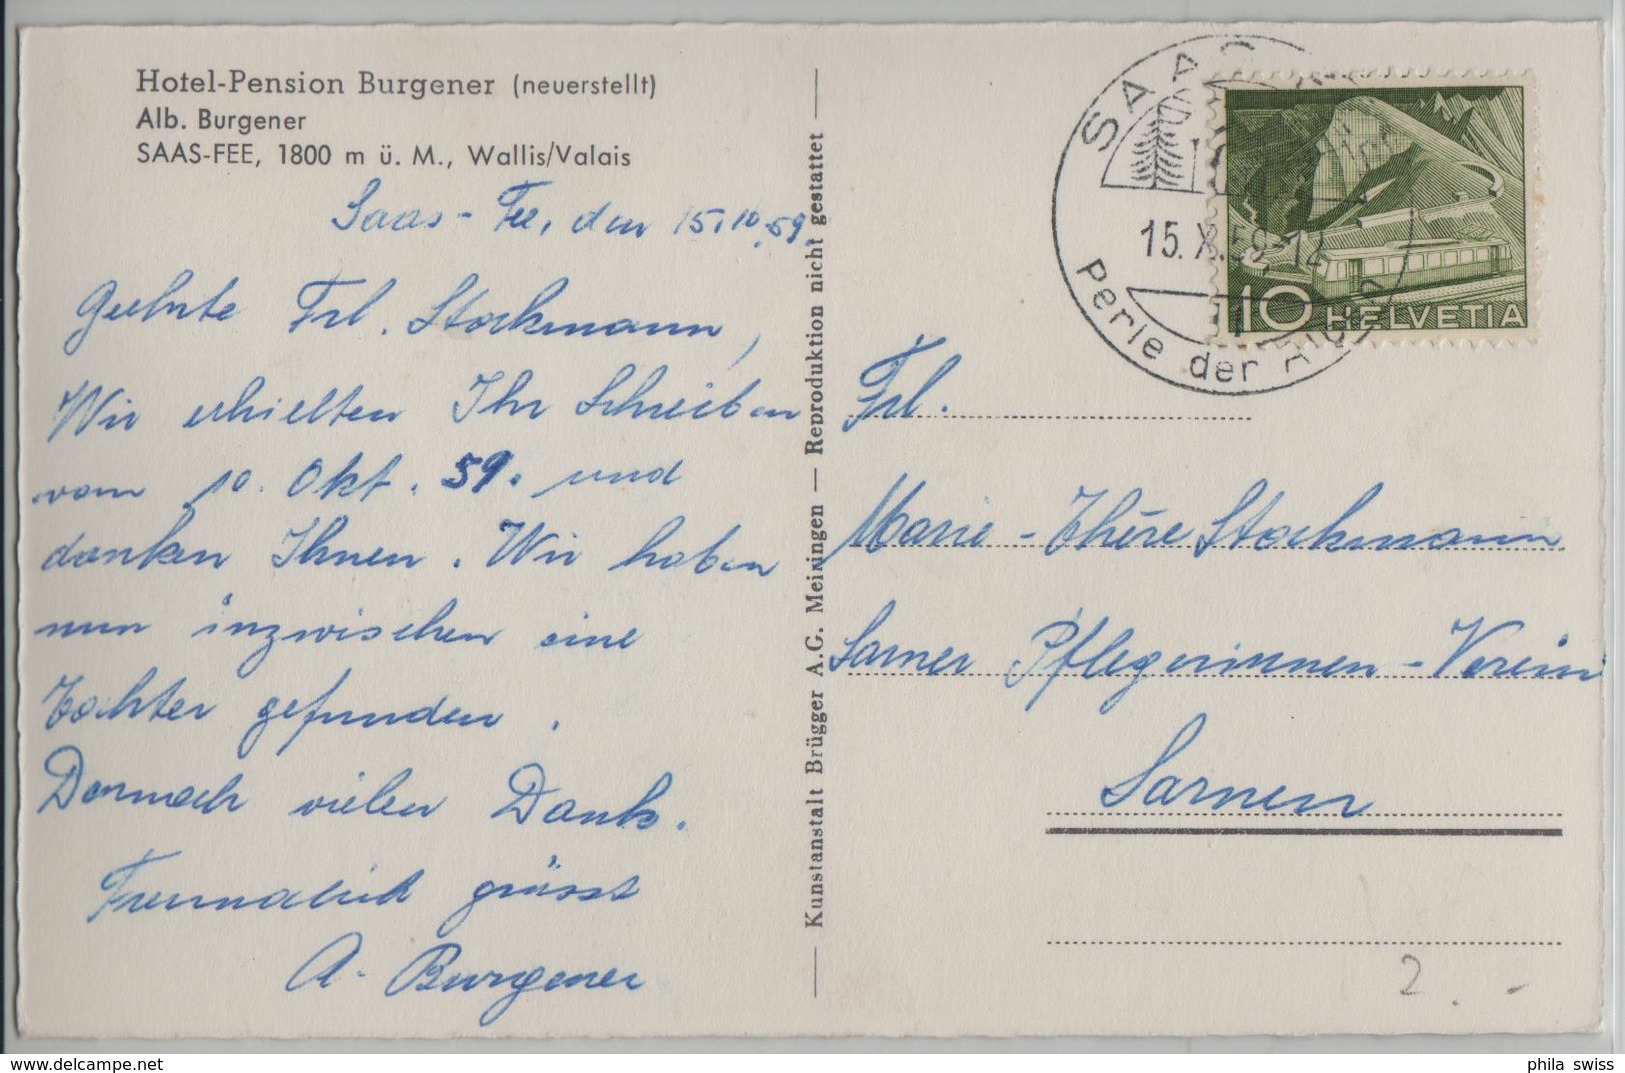 Hotel-Pension Burgener (neuerstellt)
Alb. Burgener
SAAS-FEE, 1800 m ü. M., Wallis/Valais
Saas-Fee, den 15.10.59
Geehrte Frl. Stockmann,
Wir erhielten Ihr Schreiben
vom 10. Okt. 59. und
danken Ihnen. Wir haben
nun inzwischen eine
Tochter gefunden.
Dennoch vielen Dank.
Freundlich grüsst
A. Burgener
Kunstanstalt Brügger A.G. Meiringen — Reproduktion nicht gestattet
SAAS
15.X.59-12
Perle der Alpen
10 HELVETIA
Frl.
Marie-Thère Stockmann
Sarner Pflegerinnen-Verein
Sarnen
2.-
www.delcampe.net
phila_swiss